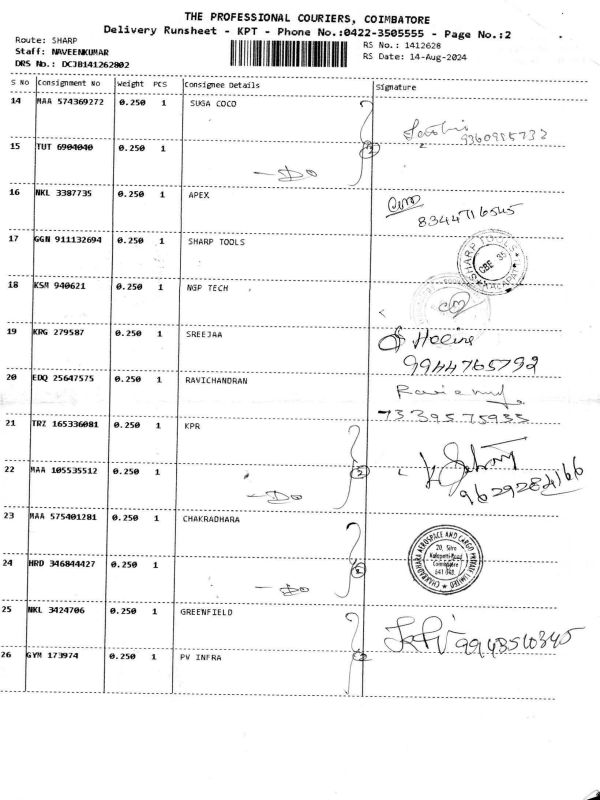 THE PROFESSIONAL COURIERS, COIMBATORE
Delivery Runsheet - KPT - Phone No.:0422-3505555 - Page No.:2
Route: SHARP
RS No.: 1412628
Staff: NAVEENKUMAR
RS Date: 14-Aug-2024
DRS No.: DCJB141262802
S No Consignment No Weight PCS Consignee Details Signature
14 MAA 574369272 0.250 1 SUGA COCO
9360955732
15 TUT 6904040 0.250 1
2
-Do
16 NKL 3387735 0.250 1 APEX
8344716545
17 GGN 911132694 0.250 1 SHARP TOOLS
SHARP TOOLS
CBE 35
KALAPATTI
18 KSM 940621 0.250 1 NGP TECH
19 KRG 279587 0.250 1 SREEJAA
9944765792
20 EDQ 25647575 0.250 1 RAVICHANDRAN
7339575935
21 TRZ 165336081 0.250 1 KPR
22 MAA 105535512 0.250 1
2
-Do
9629284166
23 MAA 575401281 0.250 1 CHAKRADHARA
CHAKRADHARA AEROSPACE AND CARGO PRIVATE LIMITED
20, Sitra
Kalapatti Road
Coimbatore
641 048.
24 HRD 346844427 0.250 1
2
-Do
25 NKL 3424706 0.250 1 GREENFIELD
9943510345
26 GYM 173974 0.250 1 PV INFRA
2